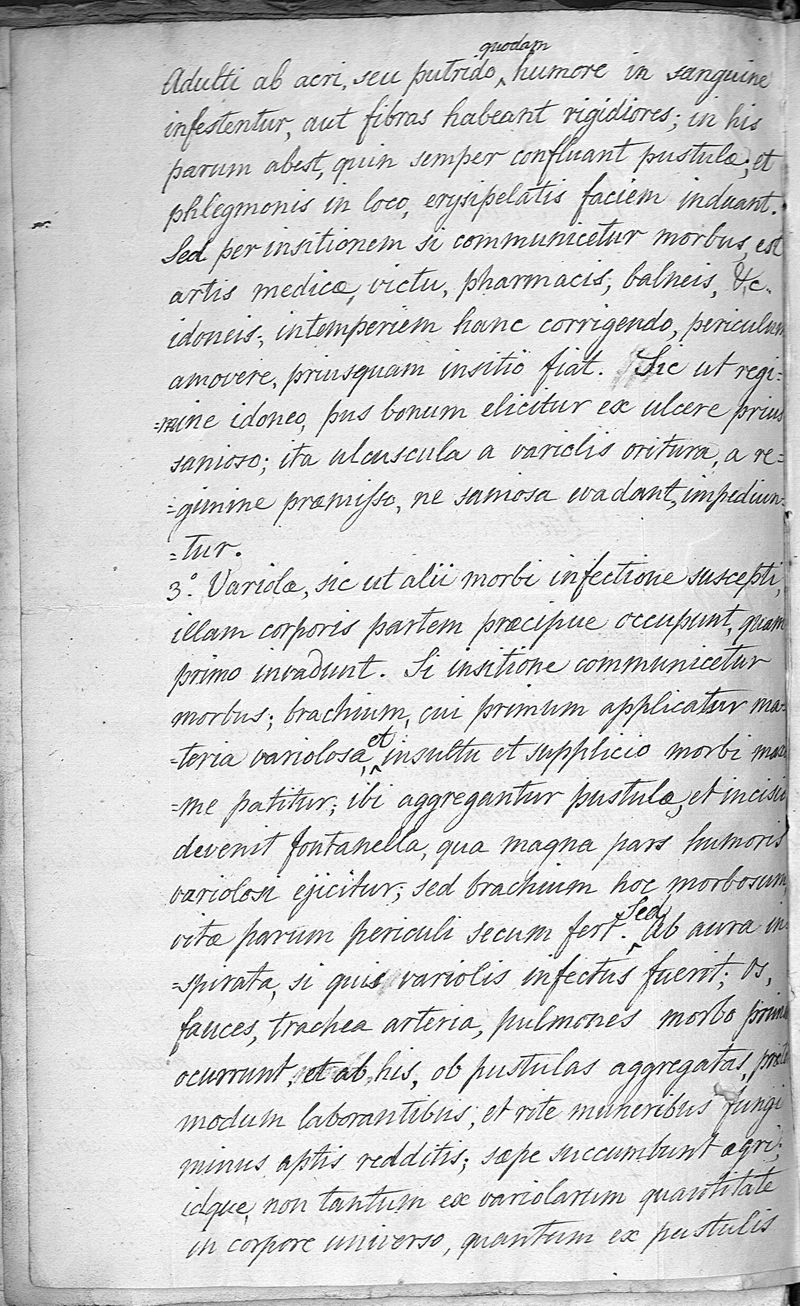 Adulti ab acri, seu putrido, quodam humore in sanguine
infestentur, aut fibras habeant rigidiores; in his
parum abest, quin semper confluant pustulæ, et
phlegmonis in loco, erysipelatis faciem induant.
Sed per insitionem si communicetur morbus, est
artis medicæ, victu, pharmacis, balneis, &c.
idoneis, intemperiem hanc corrigendo, periculum
amovere, priusquam insitio fiat. Sic ut regi-
=mine idoneo, pus bonum elicitur ex ulcere prius
sanioso; ita ulcuscula a variolis oritura, a re-
=gimine præmisso, ne saniosa evadant, impediun-
=tur.
3.° Variolæ, sic ut alii morbi infectione suscepti,
illam corporis partem præcipue occupunt, quam
primo invadunt. Si insitione communicetur
morbus; brachium, cui primum applicatur ma-
=teria variolosa, et insultu et supplicio morbi maxi
=me patitur; ibi aggregantur pustulæ, et incisio
devenit fontanella, qua magna pars humoris
variolosi ejicitur; sed brachium hoc morbosum
vitæ parum periculi secum fert. Sed ab aura in
=spirata, si quis variolis infectus fuerit; os,
fauces, trachea arteria, pulmones morbo primo
ocurrunt, et ab his, ob pustulas aggregatas,
modum laborantibus, et rite muneribus fungi
minus aptis redditis; sæpe succumbunt ægri;
idque, non tantum ex variolarum quantitate
in corpore universo, quantum ex pustulis